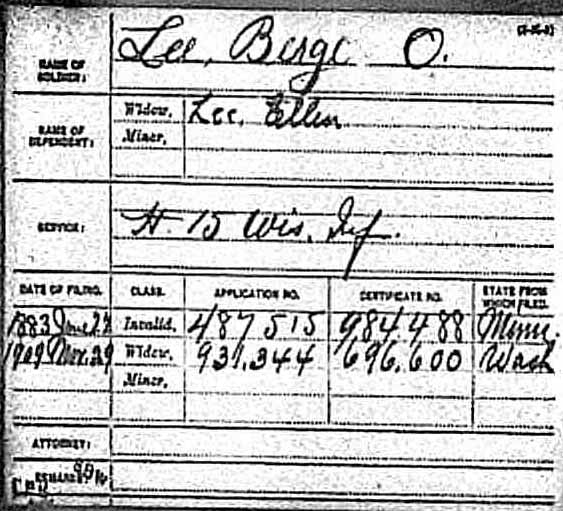 NAME OF SOLDIER: Lee, Berge O.
NAME OF DEPENDENT: Widow, Lee, Ellen
Minor,
SERVICE: H. 15 Wis. Inf.
DATE OF FILING. CLASS. APPLICATION NO. CERTIFICATE NO. STATE FROM WHICH FILED.
1883 June 22 Invalid, 487,515 984,488 Minn.
1909 Nov. 29 Widow, 931,344 696,600 Wash
Minor,
ATTORNEY:
REMARKS: